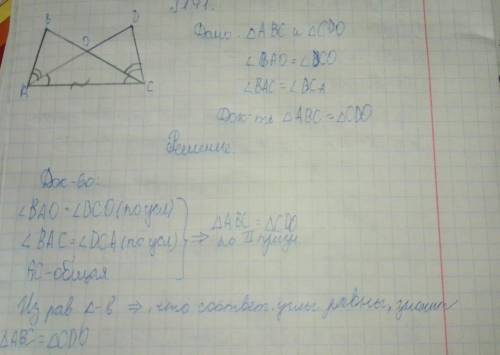 §141.
B
D
O
A
C
Дано: △ABC и △CDO
∠BAO = ∠DCO
∠BAC = ∠DCA
Док-ть △ABC = △CDO
Решение.
Док-во:
∠BAO = ∠DCO (по усл)
∠BAC = ∠DCA (по усл)
AC-общая
⇒ △ABC = △CDO
по II призн
Из рав △-в ⇒, что соответ. углы равны, значит
△ABC = △CDO